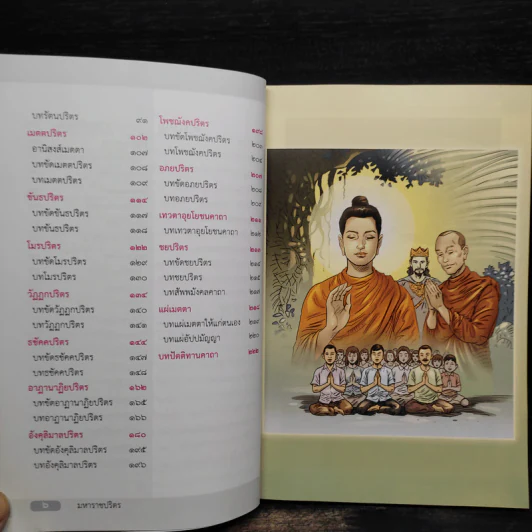 บทรัตนปริตร ๙๑
เมตตปริตร ๑๐๒
อานิสงส์เมตตา ๑๐๗
บทขัดเมตตปริตร ๑๐๘
บทเมตตปริตร ๑๐๙
ขันธปริตร ๑๑๔
บทขัดขันธปริตร ๑๑๗
บทขันธปริตร ๑๑๘
โมรปริตร ๑๒๒
บทขัดโมรปริตร ๑๒๙
บทโมรปริตร ๑๓๐
วัฏฏกปริตร ๑๓๕
บทขัดวัฏฏกปริตร ๑๔๐
บทวัฏฏกปริตร ๑๔๑
ธชัคคปริตร ๑๔๔
บทขัดธชัคคปริตร ๑๔๗
บทธชัคคปริตร ๑๔๘
อาฏานาฏิยปริตร ๑๖๒
บทขัดอาฏานาฏิยปริตร ๑๖๕
บทอาฏานาฏิยปริตร ๑๖๖
อังคุลิมาลปริตร ๑๘๐
บทขัดอังคุลิมาลปริตร ๑๙๕
บทอังคุลิมาลปริตร ๑๙๖
โพชฌังคปริตร
บทขัดโพชฌังคปริตร
บทโพชฌังคปริตร
อภยปริตร
บทขัดอภยปริตร
บทอภยปริตร
เทวดาอุยโยชนคาถา
บทเทวดาอุยโยชนคาถา
ชยปริตร
บทขัดชยปริตร
บทชยปริตร
บทสัพพมังคลคาถา
แผ่เมตตา
บทแผ่เมตตาให้แก่ตนเอง
บทแผ่อัปปมัญญา
บทปัตติทานคาถา
๖ มหาราชปริตร